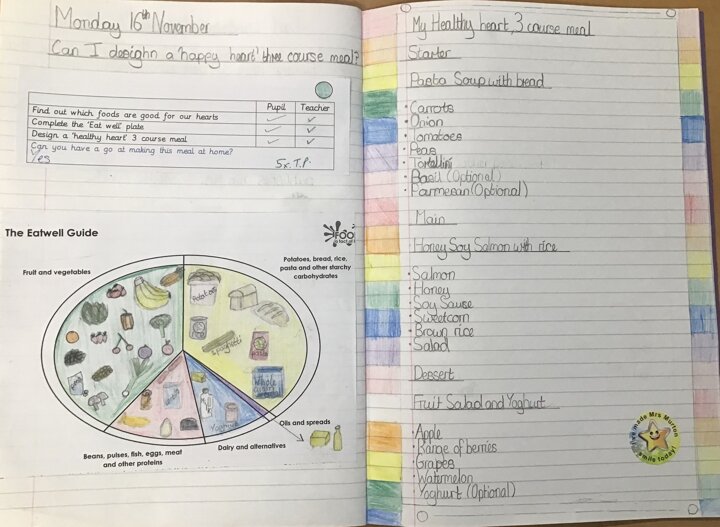 Monday 16th November
Can I desighn a 'happy heart' three course meal?
Pupil Teacher
Find out which foods are good for our hearts
Complete the 'Eat well' plate
Design a 'healthy heart' 3 course meal
Can you have a go at making this meal at home?
Yes
5x T.P.
The Eatwell Guide
Foo
a fact of
Fruit and vegetables
Potatoes, bread, rice,
pasta and other starchy
carbohydrates
Potatoes
Spaghetti
Whole
Oils and spreads
Dairy and alternatives
Beans, pulses, fish, eggs, meat
and other proteins
My Healthy heart, 3 course meal
Starter
Pasta Soup with bread
· Carrots
· Onion
· Tomatoes
· Peas
· Tortellini
· Basil (Optional)
· Parmesan (Optional)
Main
Honey Soy Salmon with rice
· Salmon
· Honey
· Soy Sause
· Sweetcorn
· Brown rice
· Salad
Dessert
Fruit Salad and Yoghurt
· Apple
· Range of berries
· Grapes
· Watermelon
· Yoghurt (Optional)
I've made Mrs Murton
smile today!